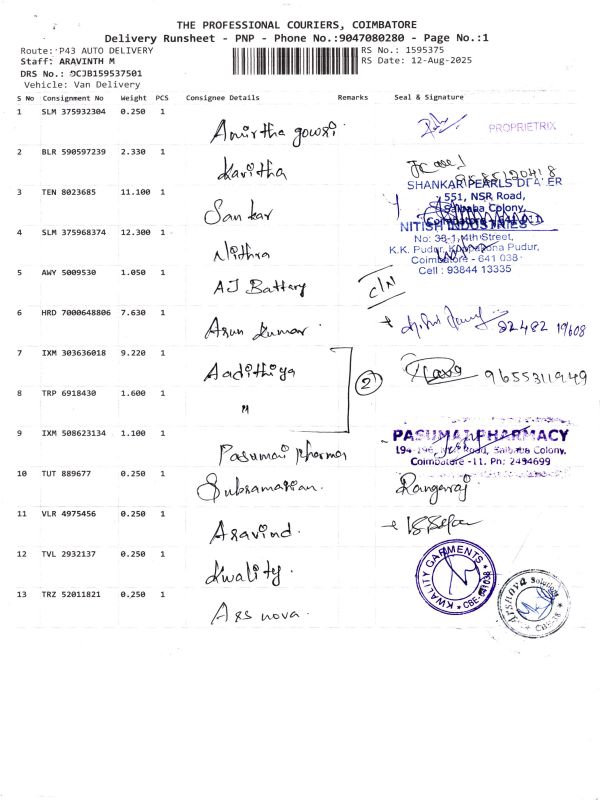 THE PROFESSIONAL COURIERS, COIMBATORE
Delivery Runsheet - PNP - Phone No.:9047080280 - Page No.:1
Route: P43 AUTO DELIVERY RS No.: 1595375
Staff: ARAVINTH M RS Date: 12-Aug-2025
DRS No.: DCJB159537501
Vehicle: Van Delivery
S No Consignment No Weight PCS Consignee Details Remarks Seal & Signature
1 SLM 375932304 0.250 1 Amirtha gowsi
PROPRIETRIX
2 BLR 590597239 2.330 1 Kavitha
3 TEN 8023685 11.100 1 Sankar
SHANKAR PEARLS DEALER
551, NSR Road,
Saibaba Colony,
4 SLM 375968374 12.300 1 Nithra
NITISH INDUSTRIES
No: 36-1, 4th Street,
K.K. Pudur, Kuppakonam Pudur,
Coimbatore - 641 038
Cell : 93844 13335
5 AWY 5009530 1.050 1 AJ Battary C/N
6 HRD 7000648806 7.630 1 Arun Kumar 82482 19608
7 IXM 303636018 9.220 1 Aadithiya 2 9655311949
8 TRP 6918430 1.600 1 "
9 IXM 508623134 1.100 1 Pasumai pharma
PASUMAI PHARMACY
194-196, NSR Road, Saibaba Colony,
Coimbatore -11. Ph: 2434699
10 TUT 889677 0.250 1 Subramanian. Rangaraj
11 VLR 4975456 0.250 1 Aravind.
12 TVL 2932137 0.250 1 Kwality.
KWALITY GARMENTS CBE-641038
13 TRZ 52011821 0.250 1 Ars nova.